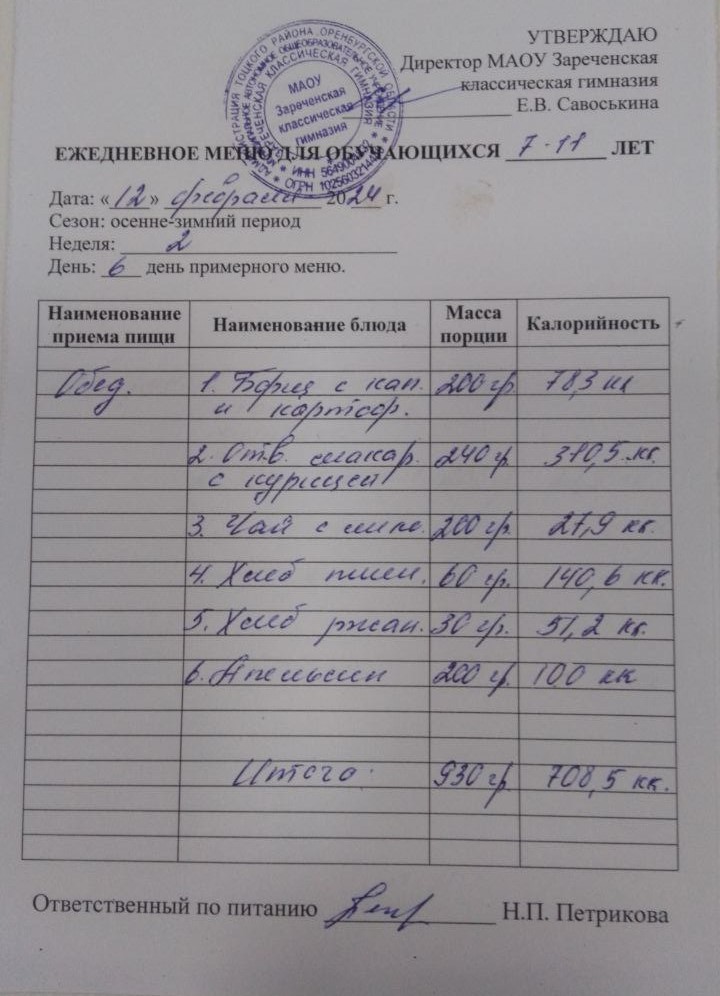 УТВЕРЖДАЮ
Директор МАОУ Зареченская
классическая гимназия
Е.В. Савоськина
МАОУ
Зареченская
классическая
гимназия
ЕЖЕДНЕВНОЕ МЕНЮ ДЛЯ ОБУЧАЮЩИХСЯ 7-11 ЛЕТ
Дата: «12» февраля 2024 г.
Сезон: осенне-зимний период
Неделя: 2
День: 6 день примерного меню.
Наименование приема пищи Наименование блюда Масса порции Калорийность
Обед. 1. Борщ с кап. 200 гр. 78,3 кк
и картоф.
2. Отв. макар. 240 гр. 310,5 кк.
с курицей
3. Чай с лимо. 200 гр. 27,9 кк.
4. Хлеб пшен. 60 гр. 140,6 кк.
5. Хлеб ржан. 30 гр. 51,2 кк.
6. Апельсин 200 гр. 100 кк
Итого: 930 гр. 708,5 кк.
Ответственный по питанию Н.П. Петрикова